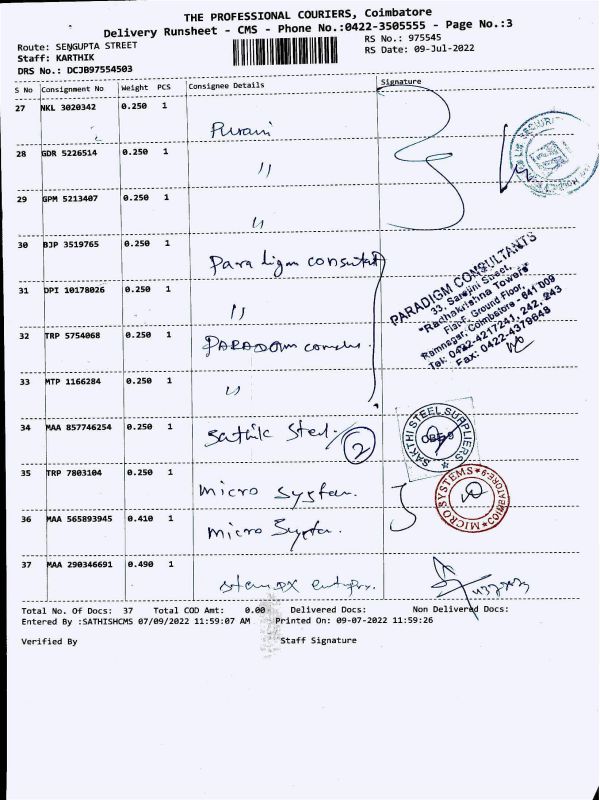 THE PROFESSIONAL COURIERS, Coimbatore
Delivery Runsheet - CMS - Phone No.:0422-3505555 - Page No.:3
Route: SENGUPTA STREET
RS No.: 975545
Staff: KARTHIK
RS Date: 09-Jul-2022
DRS No.: DCJB97554503
S No Consignment No Weight PCS Consignee Details Signature
27 NKL 3020342 0.250 1
Purani
28 GDR 5226514 0.250 1
〃
29 GPM 5213407 0.250 1
〃
30 BJP 3519765 0.250 1
Paradigm consultat
31 DPI 10178026 0.250 1
〃
PARADIGM CONSULTANTS
33, Sarojini Street,
"Radhakrishna Towers"
Flat-E, Ground Floor,
Ramnagar, Coimbatore - 641 009
Tel: 0422-4217241, 242, 243
Fax: 0422-4379849
32 TRP 5754068 0.250 1
PARADIGM
33 MTP 1166284 0.250 1
〃
34 MAA 857746254 0.250 1
Sathik Steel
2
SAKTHI STEEL SUPPLIERS
CBE-9
35 TRP 7803104 0.250 1
micro system.
MICRO SYSTEMS
COIMBATORE-9
36 MAA 565893945 0.410 1
micro System.
37 MAA 290346691 0.490 1
Total No. Of Docs: 37 Total COD Amt: 0.00 Delivered Docs: Non Delivered Docs:
Entered By :SATHISHCMS 07/09/2022 11:59:07 AM Printed On: 09-07-2022 11:59:26
Verified By Staff Signature